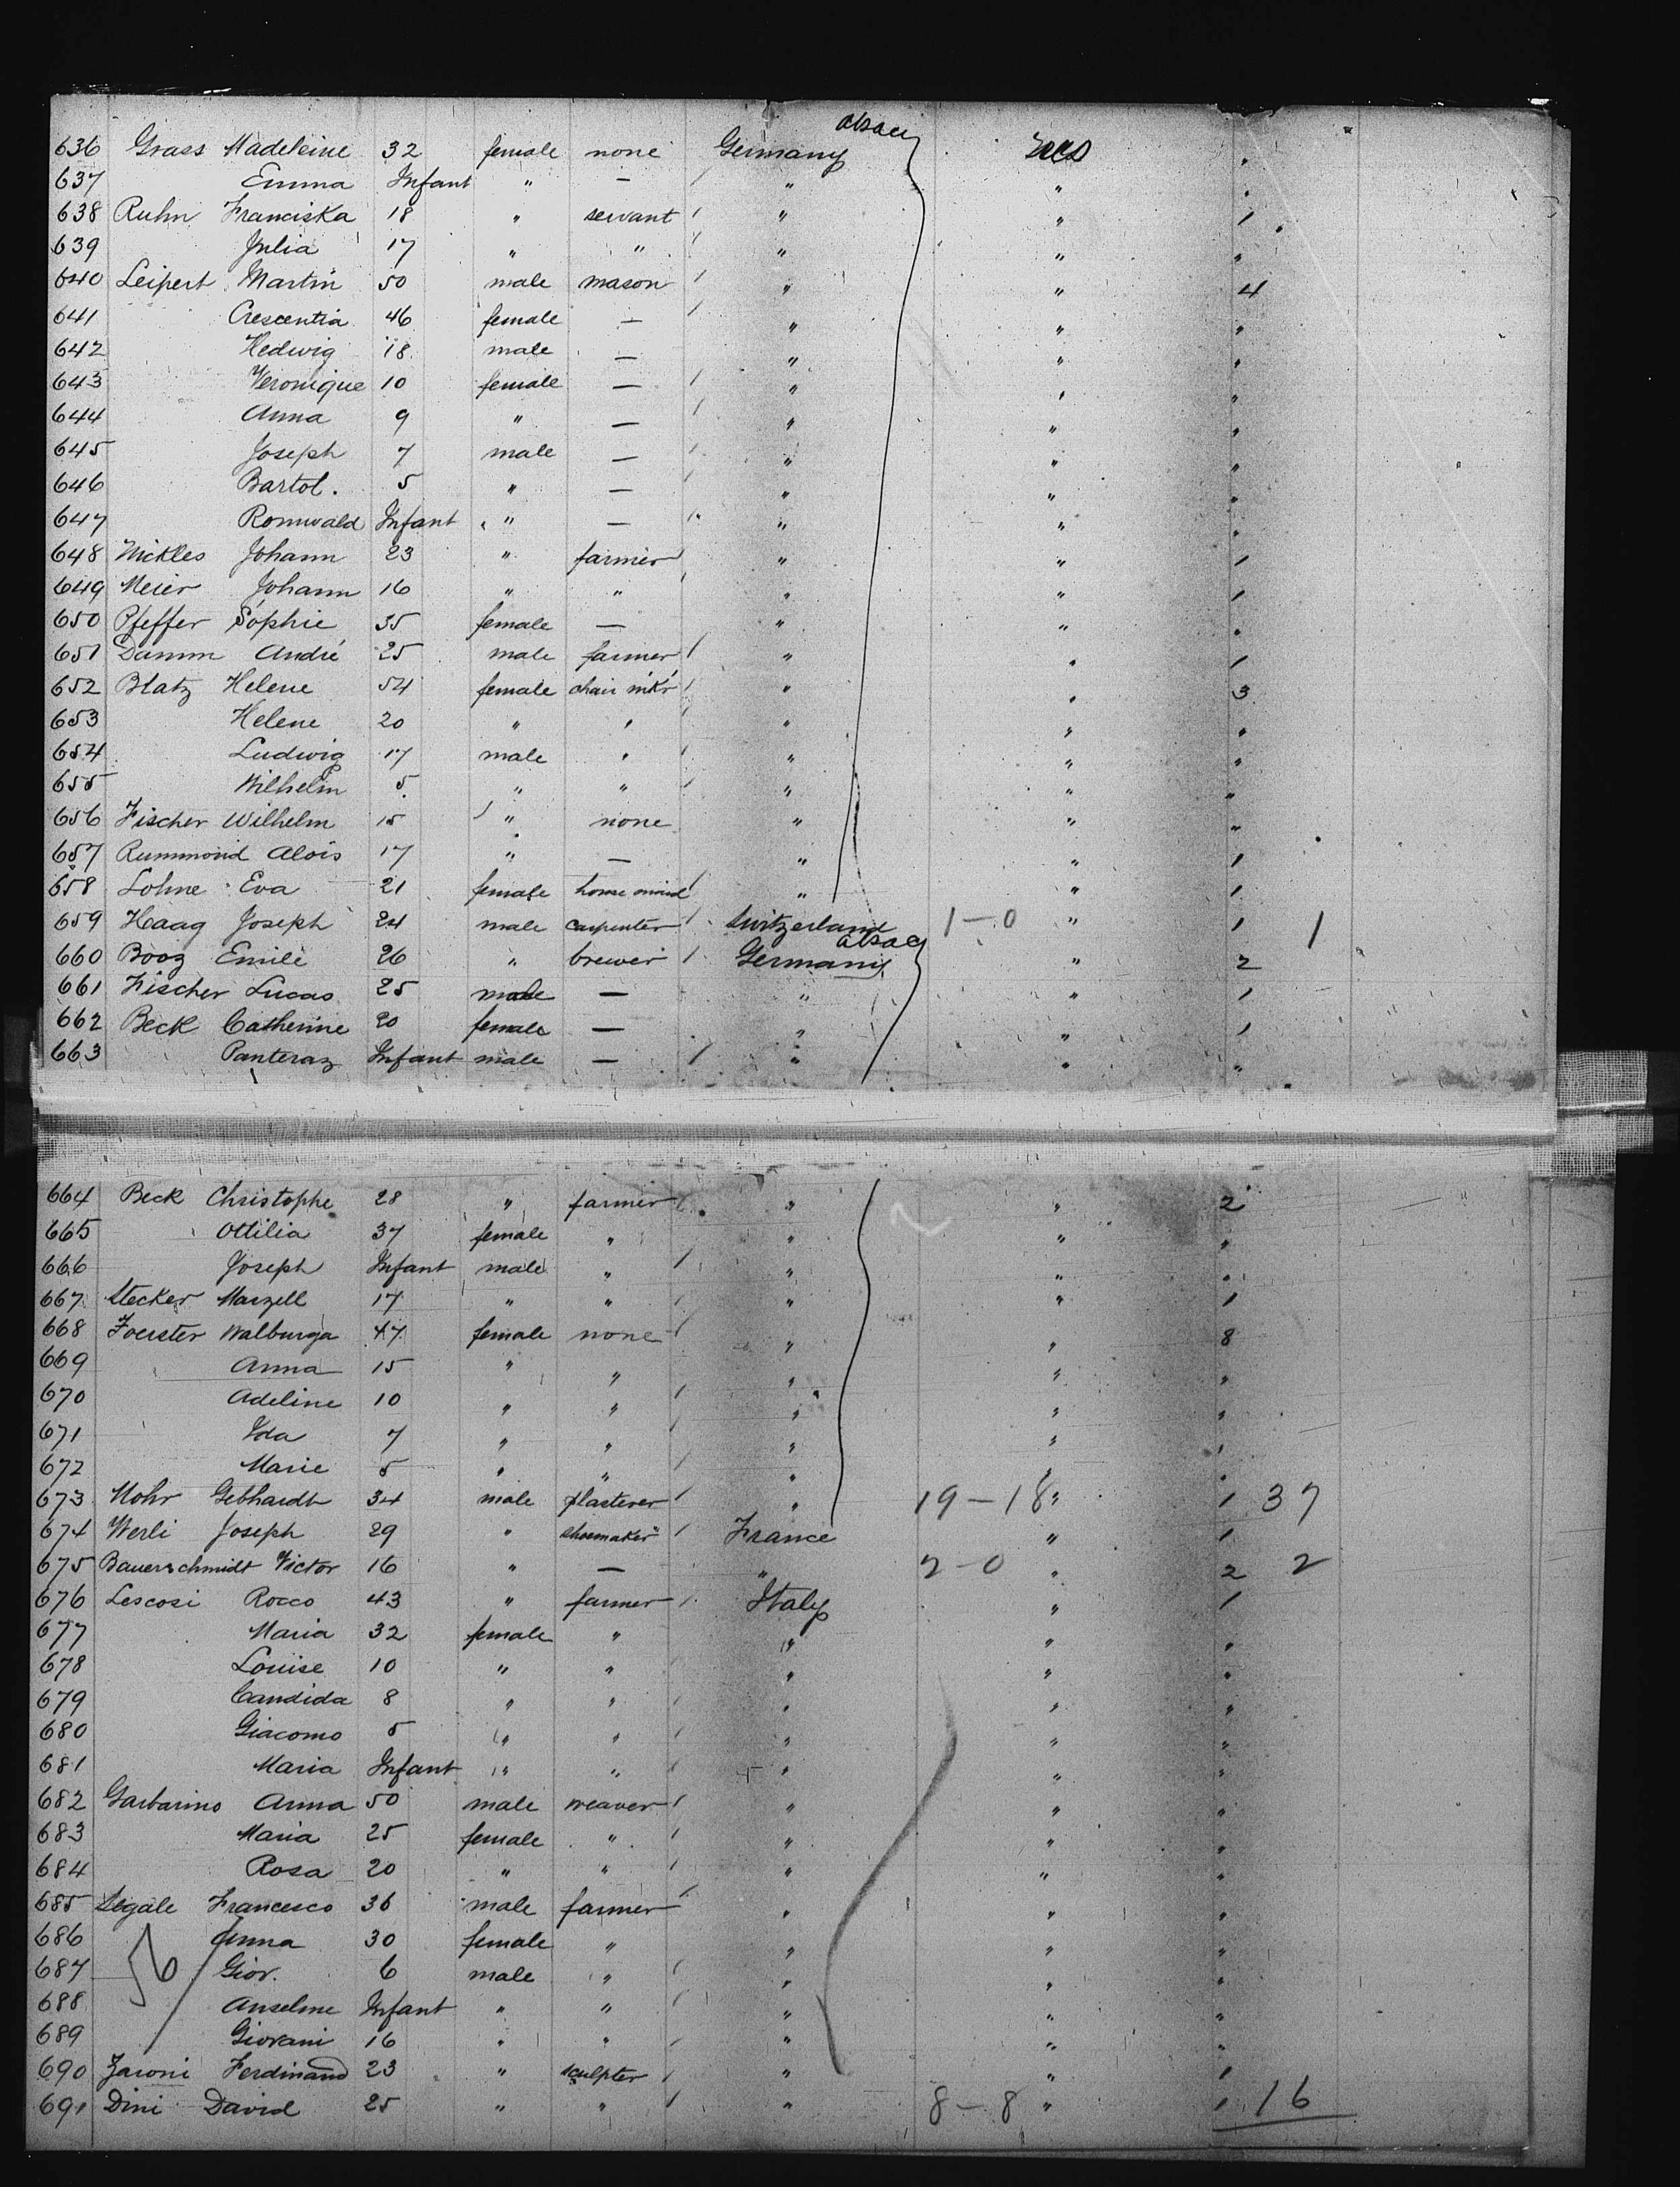 Alsace
636 Grass Madeleine 32 female none Germany
637 Emma Infant " — "
638 Ruhn Franciska 18 " servant / " " 1
639 Julia 17 " " / " " "
640 Leipert Martin 50 male mason / " " 4
641 Crescentia 46 female — / " " "
642 Hedwig 18 male — " " "
643 Veronique 10 female — / " " "
644 Anna 9 " — / " " "
645 Joseph 7 male — / " " "
646 Bartol. 5 " — / " " "
647 Romwald Infant " — / " " "
648 Nickles Johann 23 " farmer / " " 1
649 Meier Johann 16 " " / " " 1
650 Pfeffer Sophie 35 female — " " "
651 Damm André 25 male farmer / " " 1
652 Blatz Helene 54 female chair mk'r / " " 3
653 Helene 20 " " / " " "
654 Ludwig 17 male " / " " "
655 Wilhelm 5 " " / " " "
656 Fischer Wilhelm 15 " none " " "
657 Rummond Alois 17 " — " " 1
658 Lohne Eva 21 female house maid / " " 1
659 Haag Joseph 24 male carpenter / Switzerland 1–0 " 1 1
Alsace
660 Booz Emile 26 " brewer / Germany " 2
661 Fischer Lucas 25 male — " " 1
662 Beck Catherine 20 female — " " 1
663 Panteraz Infant male — / " " "
664 Beck Christophe 28 " farmer / " " 2
665 Ottilia 37 female " " " "
666 Joseph Infant male " / " " "
667 Stecker Marzell 17 " " / " " 1
668 Foerster Walburga 47 female none / " " 8
669 Anna 15 " " " " "
670 Adeline 10 " " / " " "
671 Ida 7 " " / " " "
672 Marie 5 " " / " " "
673 Mohr Gebhardt 34 male plasterer / " 19–18 " 1 37
674 Werli Joseph 29 " shoemaker / France " 1
675 Bauerschmidt Victor 16 " — " 2–0 " 2 2
676 Lescosi Rocco 43 " farmer / Italy " 1
677 Maria 32 female " " " "
678 Louise 10 " " " " "
679 Candida 8 " " / " " "
680 Giacomo 5 " " / " " "
681 Maria Infant " " / " " "
682 Garbarino Anna 50 male weaver / " " "
683 Maria 25 female " / " " "
684 Rosa 20 " " / " " "
685 Segale Francesco 36 male farmer / " " "
686 Anna 30 female " " " "
687 Giov. 6 male " / " " "
688 Anselme Infant " " / " " "
689 Giovani 16 " " / " " "
690 Zaroni Ferdinand 23 " sculpter / " " 1
691 Dini David 25 " " / " 8–8 " 1 16